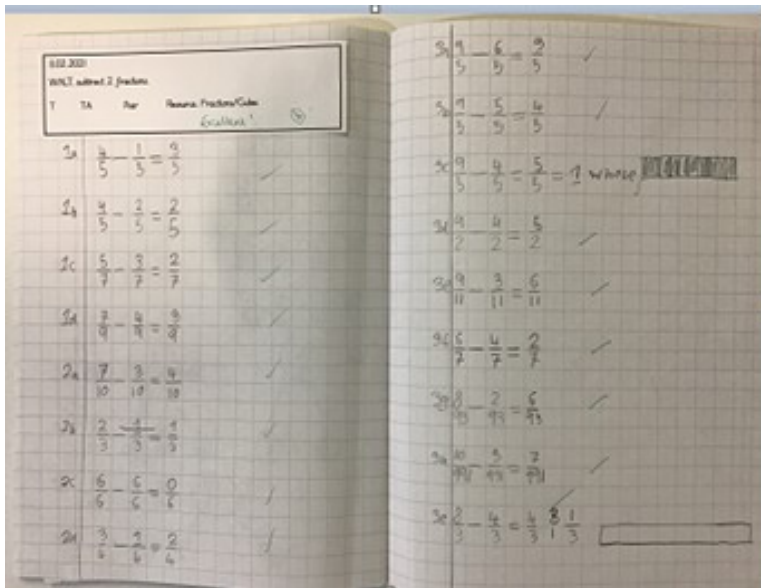 11.02.2021
WALT: subtract 2 fractions.
T TA Peer Resource: Fractions/Cubes
Excellent!
1a 4/5 - 1/5 = 3/5
1b 4/5 - 2/5 = 2/5
1c 5/7 - 3/7 = 2/7
1d 7/9 - 4/9 = 3/9
2a 7/10 - 3/10 = 4/10
2b 2/3 - 1/3 = 1/3
2c 6/6 - 6/6 = 0/6
2d 3/6 - 1/6 = 2/6
3a 9/5 - 6/5 =
3b 9/5 - 5/5 = 4/5
3c 9/5 - 4/5 = 5/5 = 1 whole
3d 9/2 - 4/2 = 5/2
3e 9/11 - 3/11 = 6/11
6/7 - 4/7 = 2/7
3g 8/93 - 2/93 = 6/93